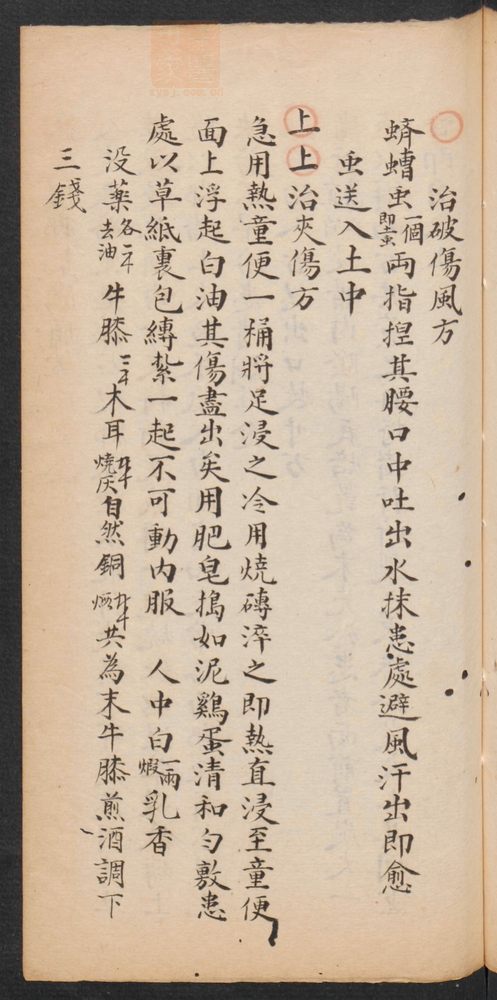 治破傷風方
蠐螬虫一個即蚕虫両指揑其腰口中吐出水抹患處避風汗出即愈
虫送入土中
上上治夾傷方
急用熱童便一桶將足浸之冷用燒磚淬之即熱直浸至童便
面上浮起白油其傷盡出矣用肥皂搗如泥鷄蛋清和勻敷患
處以草紙裏包縛紮一起不可動內服 人中白煅一兩乳香
没藥各二錢去油 牛膝三錢木耳燒灰自然銅煅共為末牛膝煎酒調下
三錢